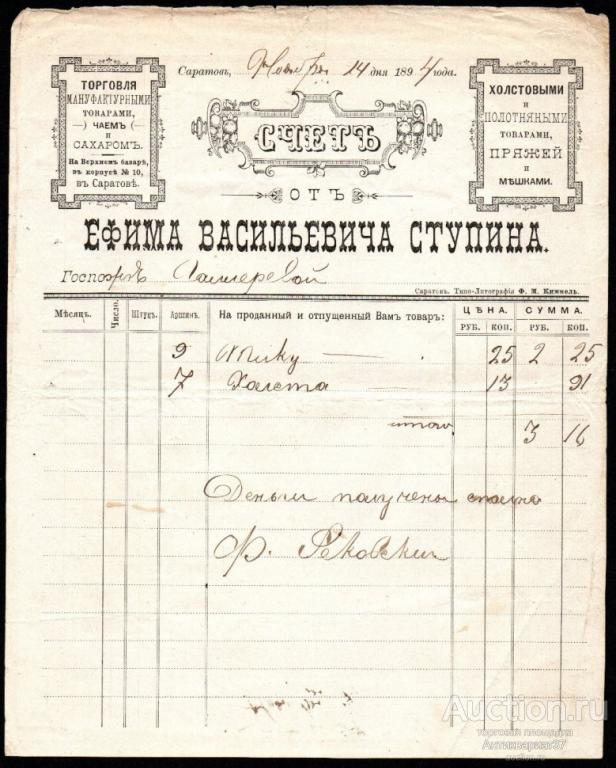 ТОРГОВЛЯ
МАНУФАКТУРНЫМИ
ТОВАРАМИ,
ЧАЕМЪ
и
САХАРОМЪ.
На Верхнемъ базарѣ,
въ корпусѣ № 10,
въ Саратовѣ.
Саратовъ, Ноября 14 дня 1894 года.
СЧЕТЪ
ОТЪ
ХОЛСТОВЫМИ
и
ПОЛОТНЯНЫМИ
ТОВАРАМИ,
ПРЯЖЕЙ
и
МѢШКАМИ.
ЕФИМА ВАСИЛЬЕВИЧА СТУПИНА.
Госпо
Саратовъ. Типо-Литографія Ф. М. Киммель.
Мѣсяцъ. Число. Штукъ. Аршинъ. На проданный и отпущенный Вамъ товаръ: ЦѢНА. СУММА.
РУБ. КОП. РУБ. КОП.
9 пику 25 2 25
7 Холста 13 91
итого 3 16
Деньги получены сполна
Ф. Рековский
Auction.ru
торговая площадка
Антиквариат37
auction.ru